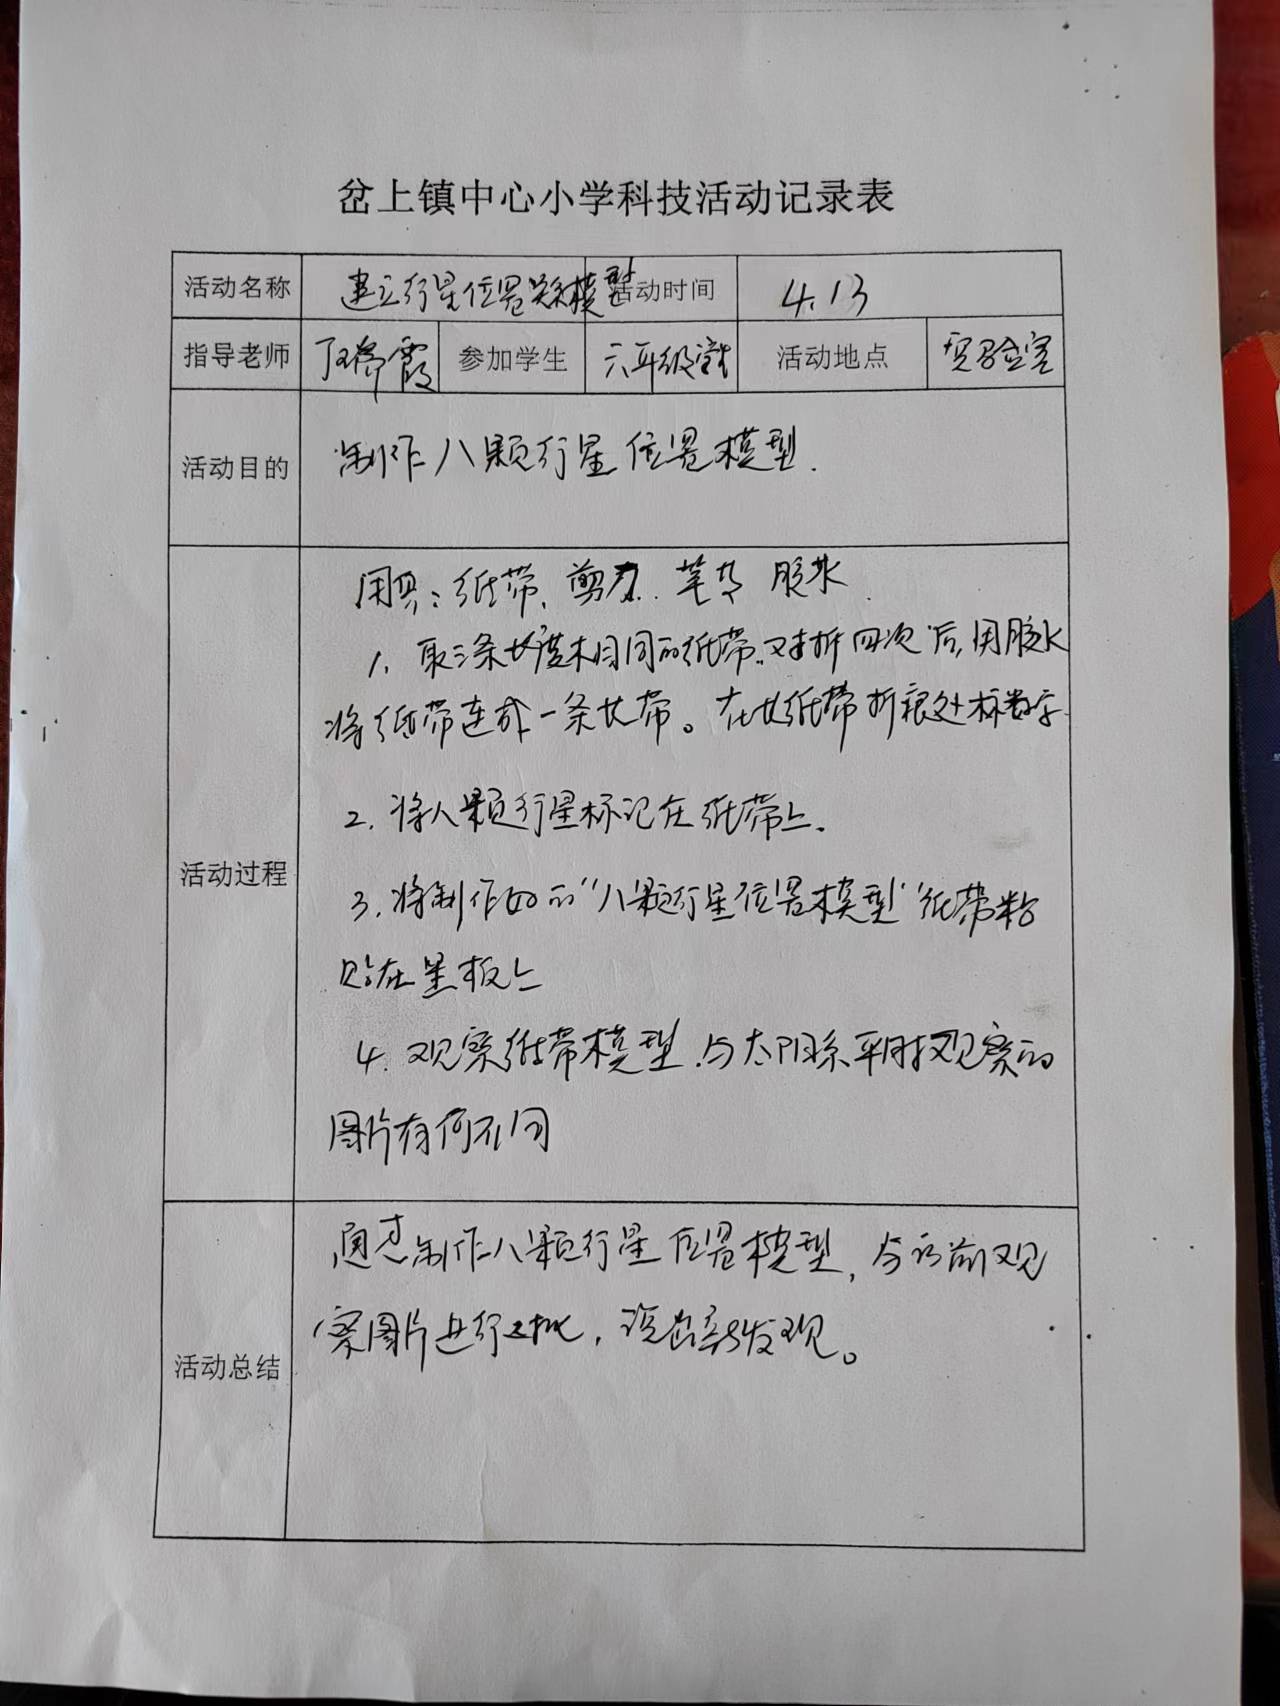 岔上镇中心小学科技活动记录表
活动名称 建立行星位置关系模型 活动时间 4.13
指导老师 霞 参加学生 六年级学生 活动地点 实验室
活动目的 制作八颗行星位置模型.
用具:纸带、剪刀. 笔 胶水.
1. 取三条长度相同的纸带.对折四次后,用胶水
将纸带连成一条长带。在长纸带折痕处标数字
2. 将八颗行星标记在纸带上.
活动过程
3. 将制作好的“八颗行星位置模型”纸带粘
贴在黑板上
4. 观察纸带模型.与太阳系平时观察的
图片有何不同
通过制作八颗行星位置模型,与以前观
察图片进行对比,说出新发现。
活动总结